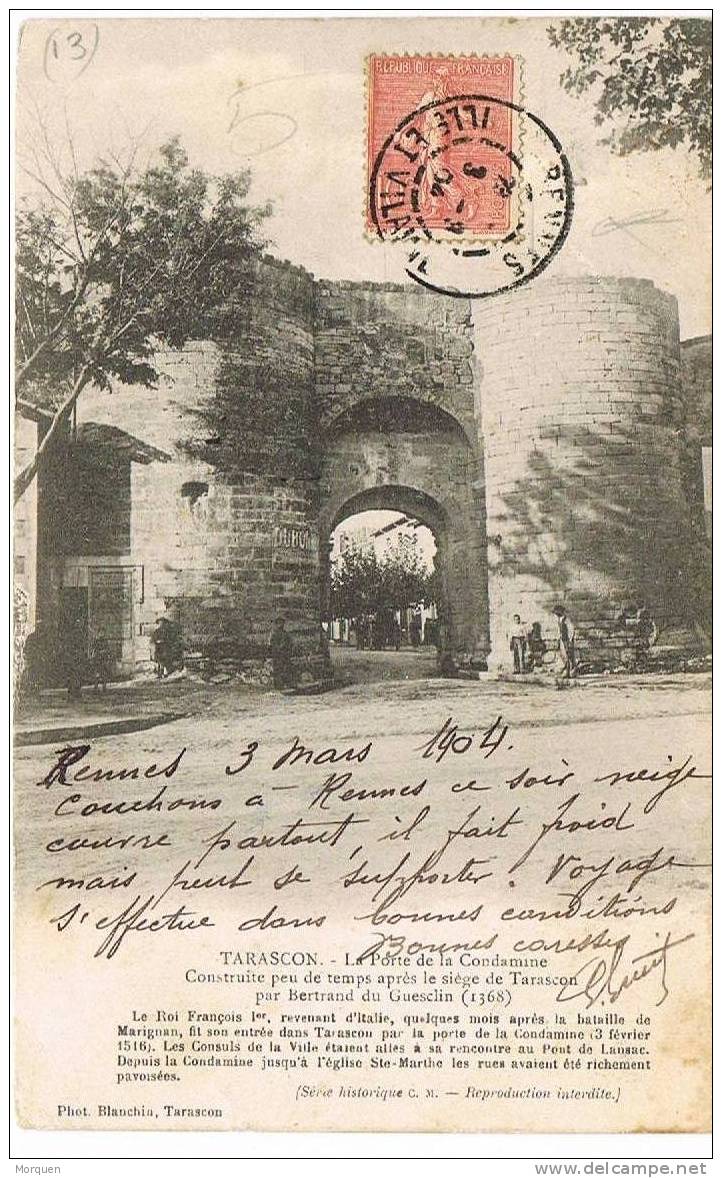 (13)
5
REPUBLIQUE FRANÇAISE
RENNES
ILLE ET VILAINE
3
04
DUBON
Rennes 3 Mars 1904.
Couchons à Rennes ce soir neige
couvre partout, il fait froid
mais peut se supporter. Voyage
s'effectue dans bonnes conditions
Bonnes caresses
TARASCON. - La Porte de la Condamine
Construite peu de temps après le siège de Tarascon
par Bertrand du Guesclin (1368)
Le Roi François Ier, revenant d'Italie, quelques mois après la bataille de
Marignan, fit son entrée dans Tarascon par la porte de la Condamine (3 février
1516). Les Consuls de la Ville étaient allés à sa rencontre au Pont de Lansac.
Depuis la Condamine jusqu'à l'église Ste-Marthe les rues avaient été richement
pavoisées.
(Série historique C. M. — Reproduction interdite.)
Phot. Blanchin, Tarascon
Morquen
delcampe.net